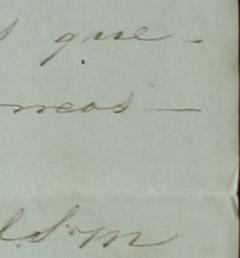 que-
neos-
S. M